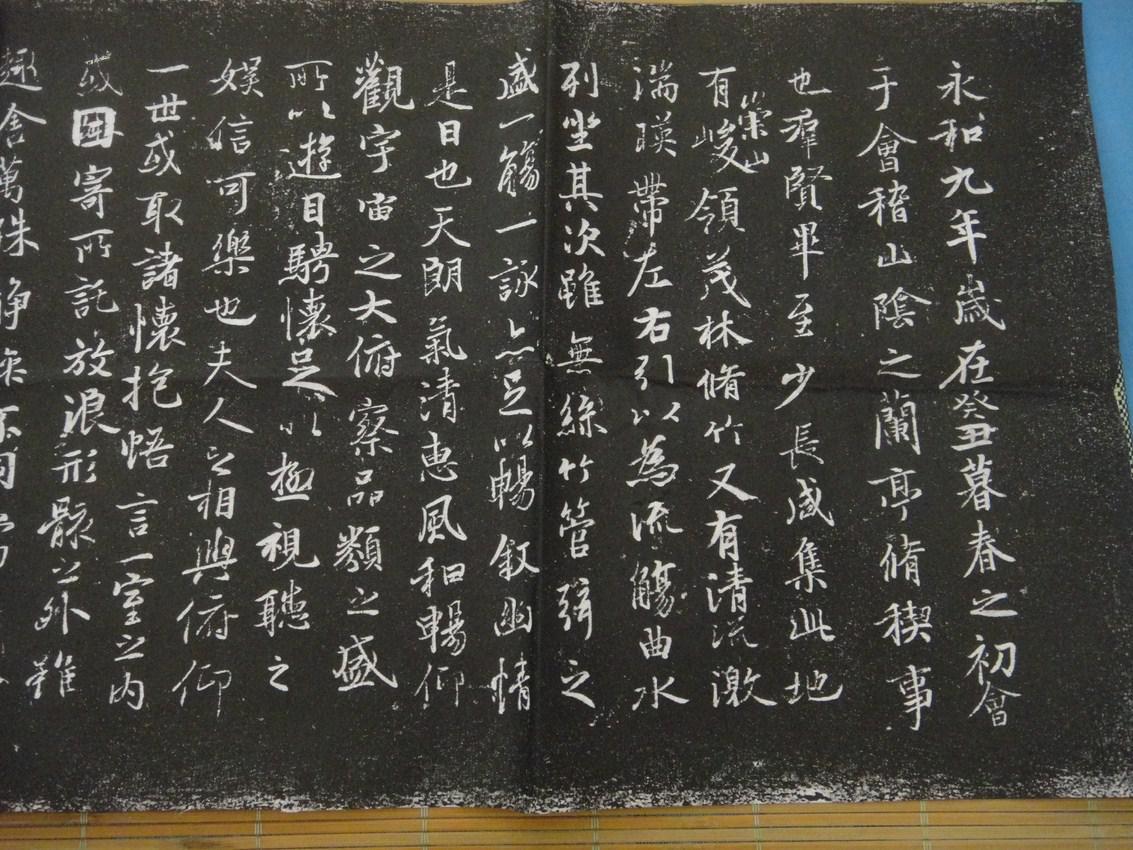 永和九年歲在癸丑暮春之初會
于會稽山陰之蘭亭脩稧事
也羣賢畢至少長咸集此地
有崇山峻領茂林脩竹又有清流激
湍暎帶左右引以為流觴曲水
列坐其次雖無絲竹管弦之
盛一觴一詠亦足以暢叙幽情
是日也天朗氣清惠風和暢仰
觀宇宙之大俯察品類之盛
所以遊目騁懷足以極視聽之
娛信可樂也夫人之相與俯仰
一世或取諸懷抱悟言一室之內
或因寄所託放浪形骸之外雖
趣舍萬殊靜躁不同